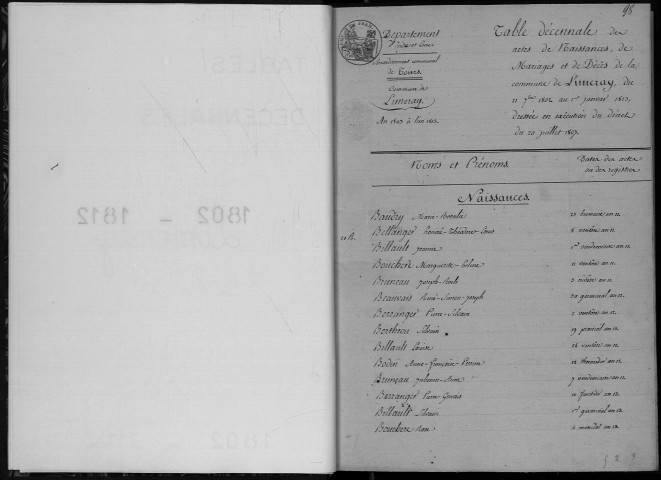 98
Département
d'Indre et Loire
Arrondissement communal
de Tours
Commune de
Limeray.
An 1803 à l'an 1813.
Table décennale des
actes de Naissances, de
Mariages et de Décès de la
commune de Limeray, du
11 7bre 1802 au 1er janvier 1813,
dressée en exécution du décret
du 20 juillet 1807.
Noms et Prénoms
Dates des actes
ou des registres
Naissances.
Baudry Marie
Bellanger Théodore Louis 6 ventôse an 11
Billault Jeanne 1er vendémiaire an 12
Bouchere Marguerite 11 ventôse an 12
Bruneau Joseph
Beauvais René Simon Joseph 20 germinal an 12
Berranger Pierre Silvain 2 ventôse an 12
Berthion Silvain 19 prairial an 12
Billault 28 ventôse an 12
Bodin Anne Françoise 12 thermidor an 12
Bruneau Anne 7 vendémiaire an 12
Berranger Pierre Gervais 11 fructidor an 12
Billault Silvain 1er germinal an 12
Bouchere Jean
1802 – 1812
TABLES
DECENNALES
1802